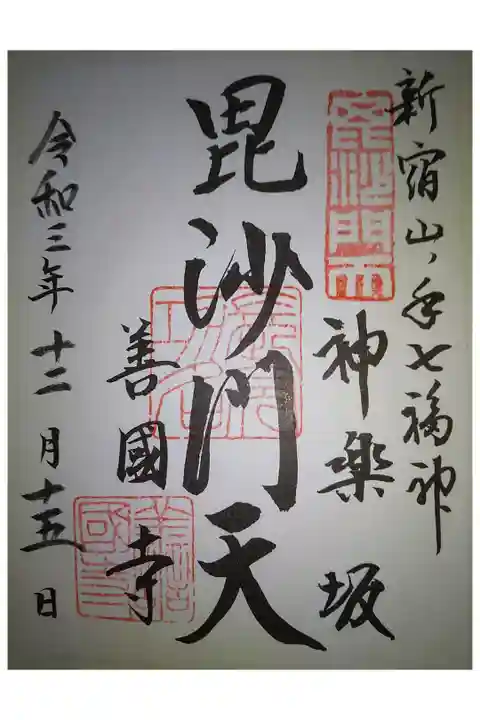 新宿山ノ手七福神
神楽坂
毘沙門天
善國寺
令和三年十二月十五日
毘沙門天
善國寺